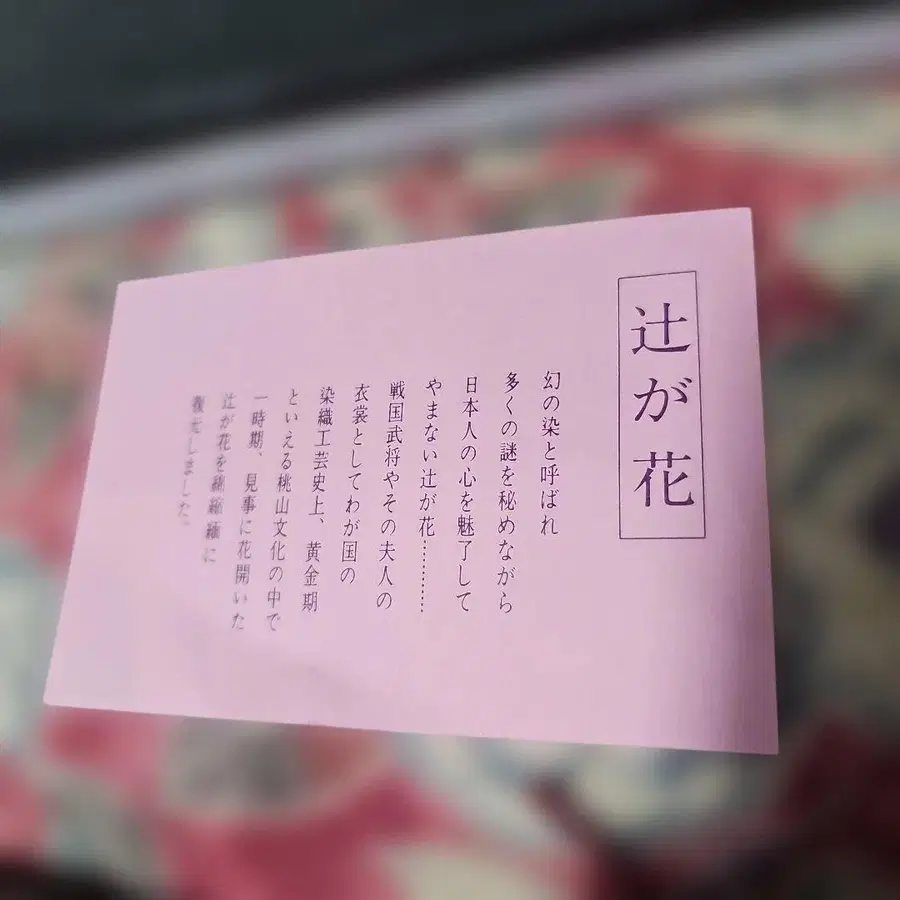 辻が花
幻の染と呼ばれ
多くの謎を秘めながら
日本人の心を魅了して
やまない辻が花…………
戦国武将やその夫人の
衣裳としてわが国の
染織工芸史上、黄金期
といえる桃山文化の中で
一時期、見事に花開いた
辻が花を縮緬に
復元しました。